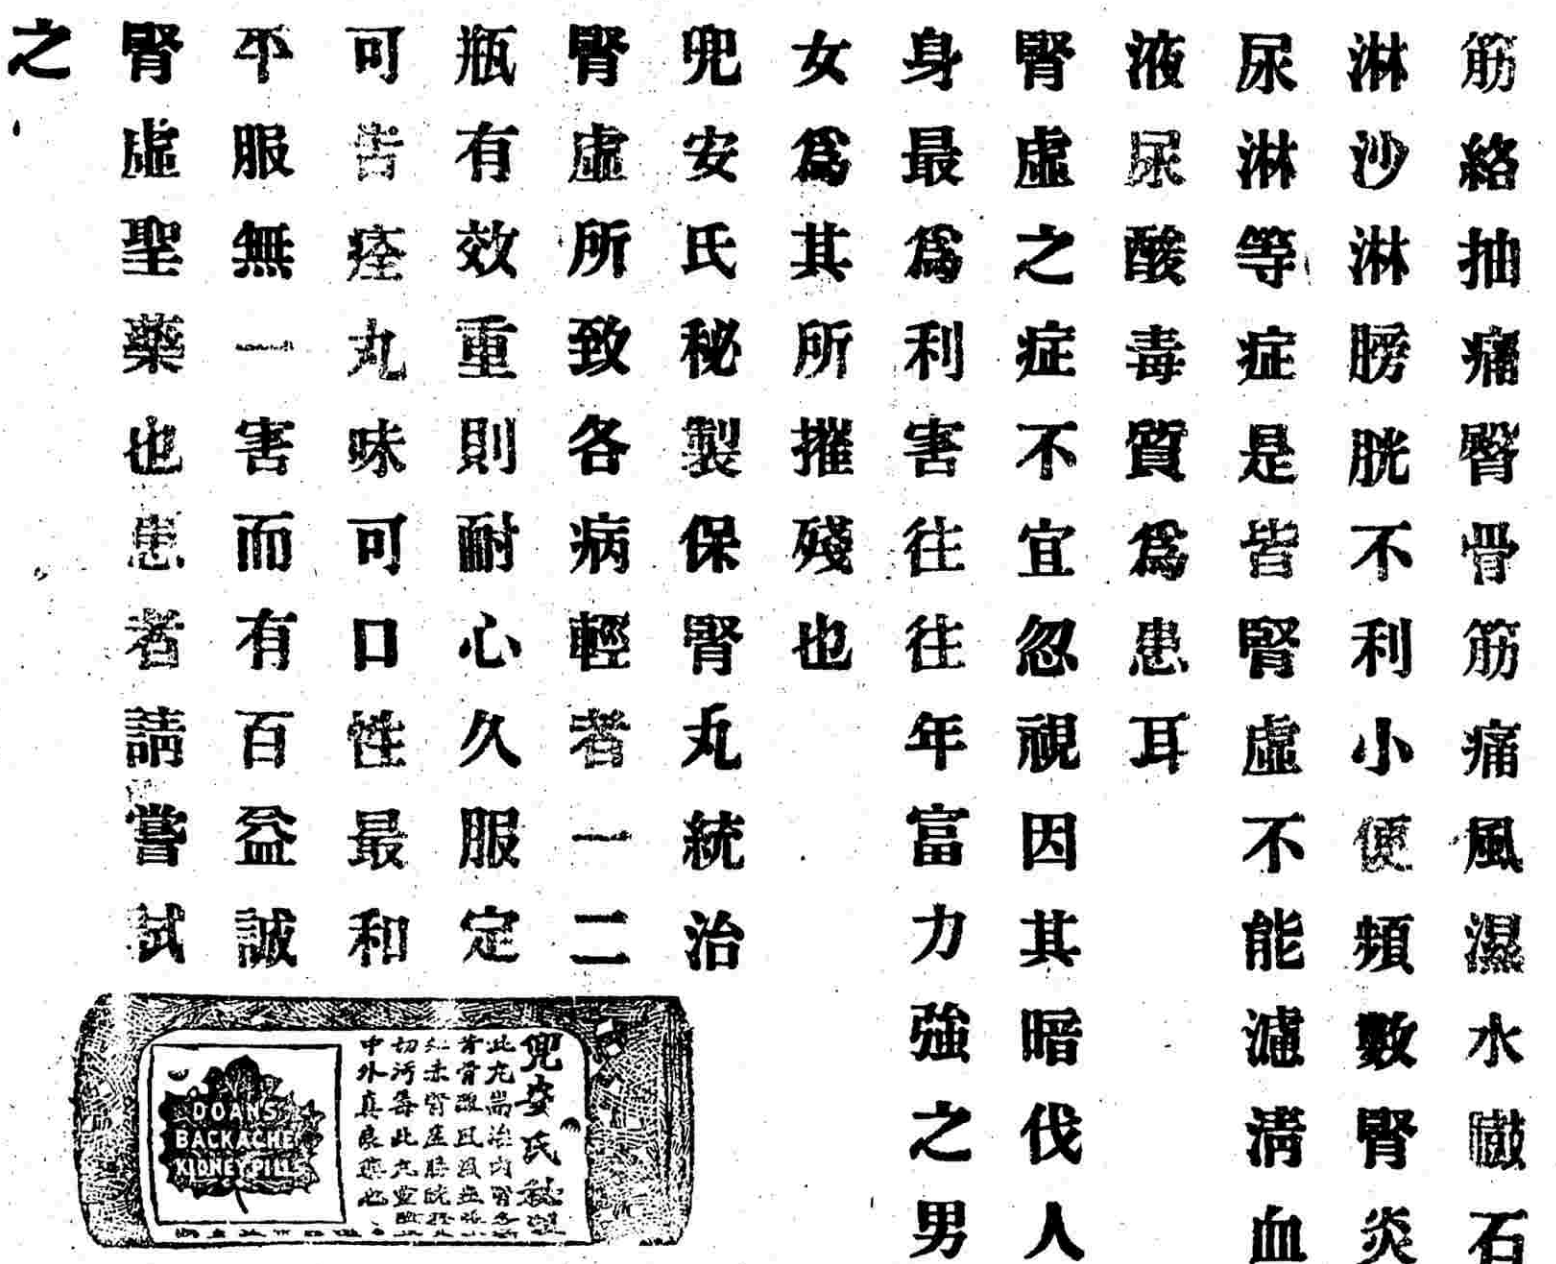 筋絡抽痛臀骨筋痛風濕水臌石
淋沙淋膀胱不利小便頻數腎炎
尿淋等症是皆腎虛不能濾淸血
液尿酸毒質爲患耳
腎虛之症不宜忽視因其暗伐人
身最爲利害往往年富力強之男
女爲其所摧殘也
兜安氏秘製保腎丸統治
腎虛所致各病輕者一二
瓶有效重則耐心久服定
可告痊丸味可口性最和
平服無一害而有百益誠
腎虛聖藥也患者請嘗試
之
兜安氏秘製
中外真良藥也
DOANS
BACKACHE
KIDNEY PILLS